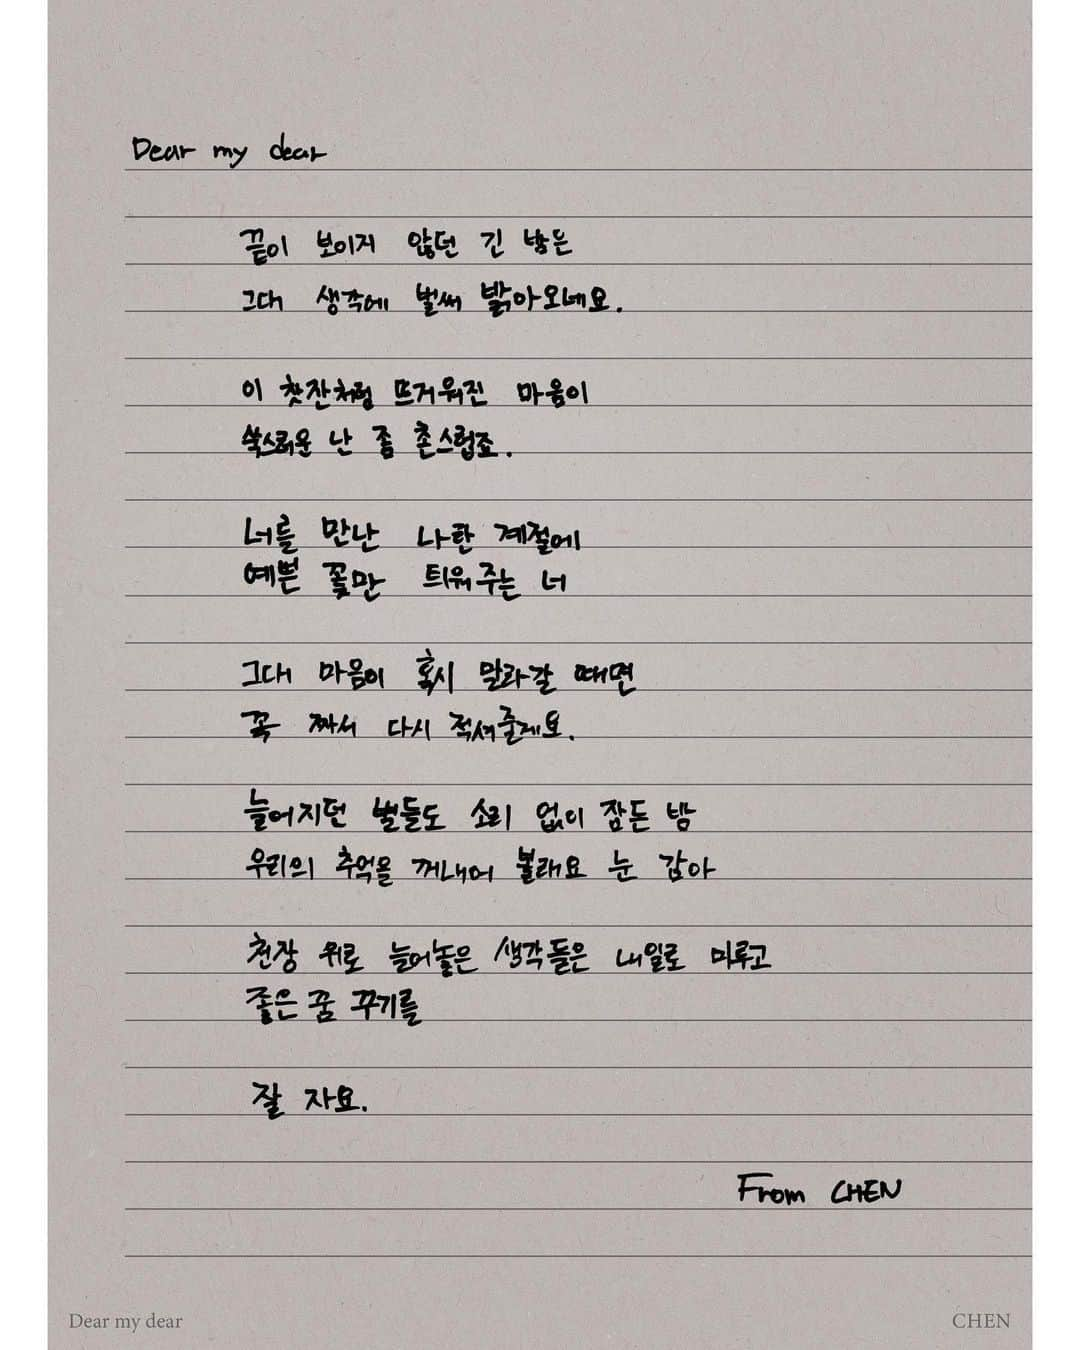 Dear my dear
끝이 보이지 않던 긴 밤은
그대 생각에 벌써 밝아오네요.
이 찻잔처럼 뜨거워진 마음이
쑥스러운 난 좀 촌스럽죠.
너를 만난 나란 계절에
예쁜 꽃만 틔워주는 너
그대 마음이 혹시 말라갈 때면
꼭 짜서 다시 적셔줄게요.
늘어지던 별들도 소리 없이 잠든 밤
우리의 추억을 꺼내어 볼래요 눈 감아
천장 위로 늘어놓은 생각들은 내일로 미루고
좋은 꿈 꾸기를
잘 자요.
From CHEN
Dear my dear CHEN